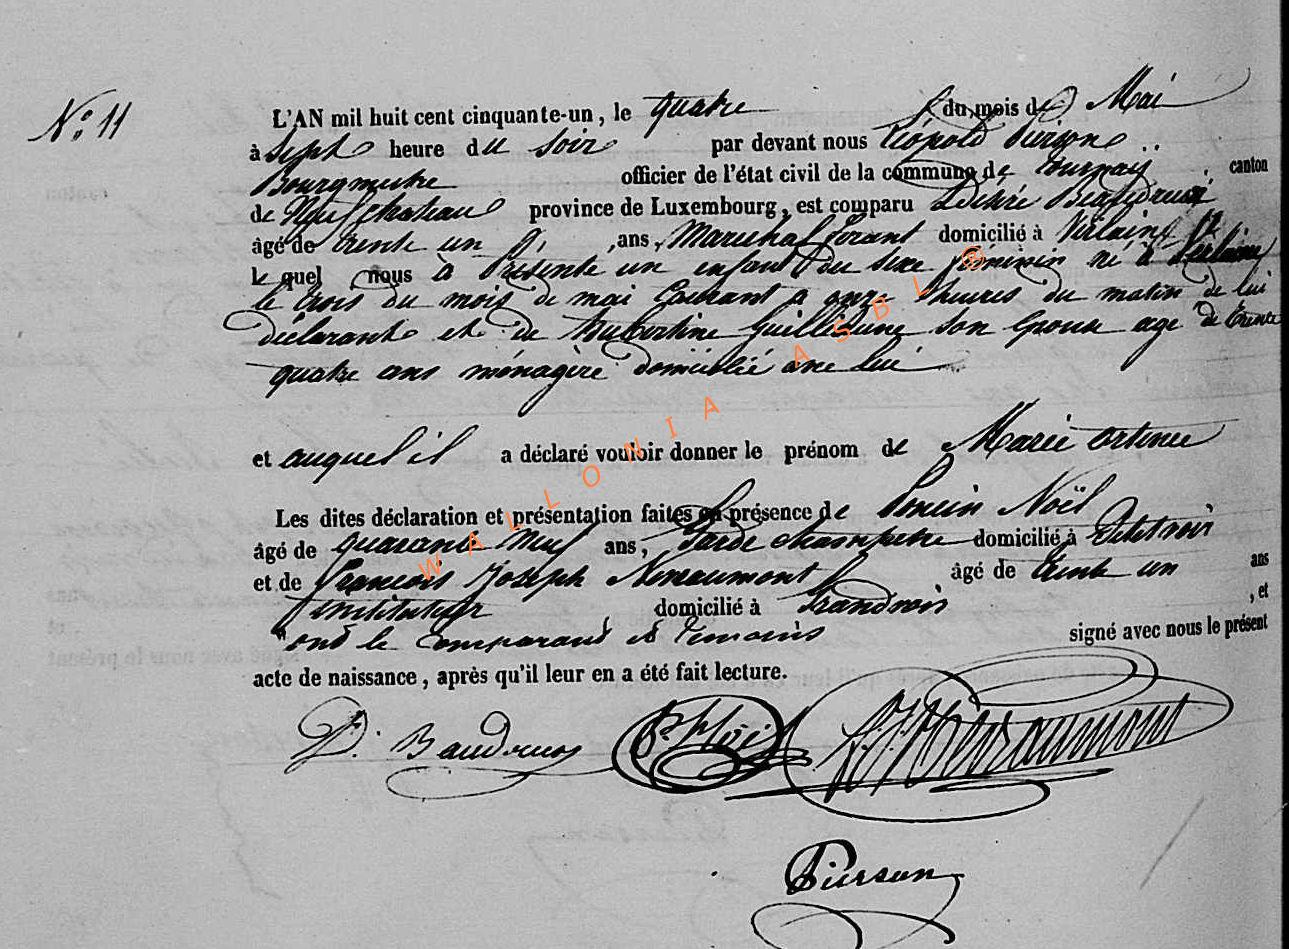 N.° 11
L'AN mil huit cent cinquante-un, le quatre du mois de Mai
à sept heure du soir par devant nous Léopold Pierson
Bourgmestre officier de l'état civil de la commune de Tournay canton
de Neufchateau province de Luxembourg, est comparu Désiré
âgé de trente un ans, Marechal ferant domicilié à Verlaine
Le quel nous à Présenté un enfant du sexe feminin né à Verlaine
le trois du mois de mai Courant a onze heures du matin de lui
déclarant et de Hubertine son Epouse age de trente
quatre ans ménagère domicilié avec lui
et auquel il a déclaré vouloir donner le prénom de Marie
Les dites déclaration et présentation faites en présence de Poncin Noël
âgé de quarante Neuf ans, Garde champetre domicilié à Petitvoir
et de François Joseph âgé de trente un ans
instituteur domicilié à Grandvoir, et
ont le Comparant et temoins signé avec nous le présent
acte de naissance, après qu'il leur en a été fait lecture.
D. Baudrux
Pierson
WALLONIA ASBL ®